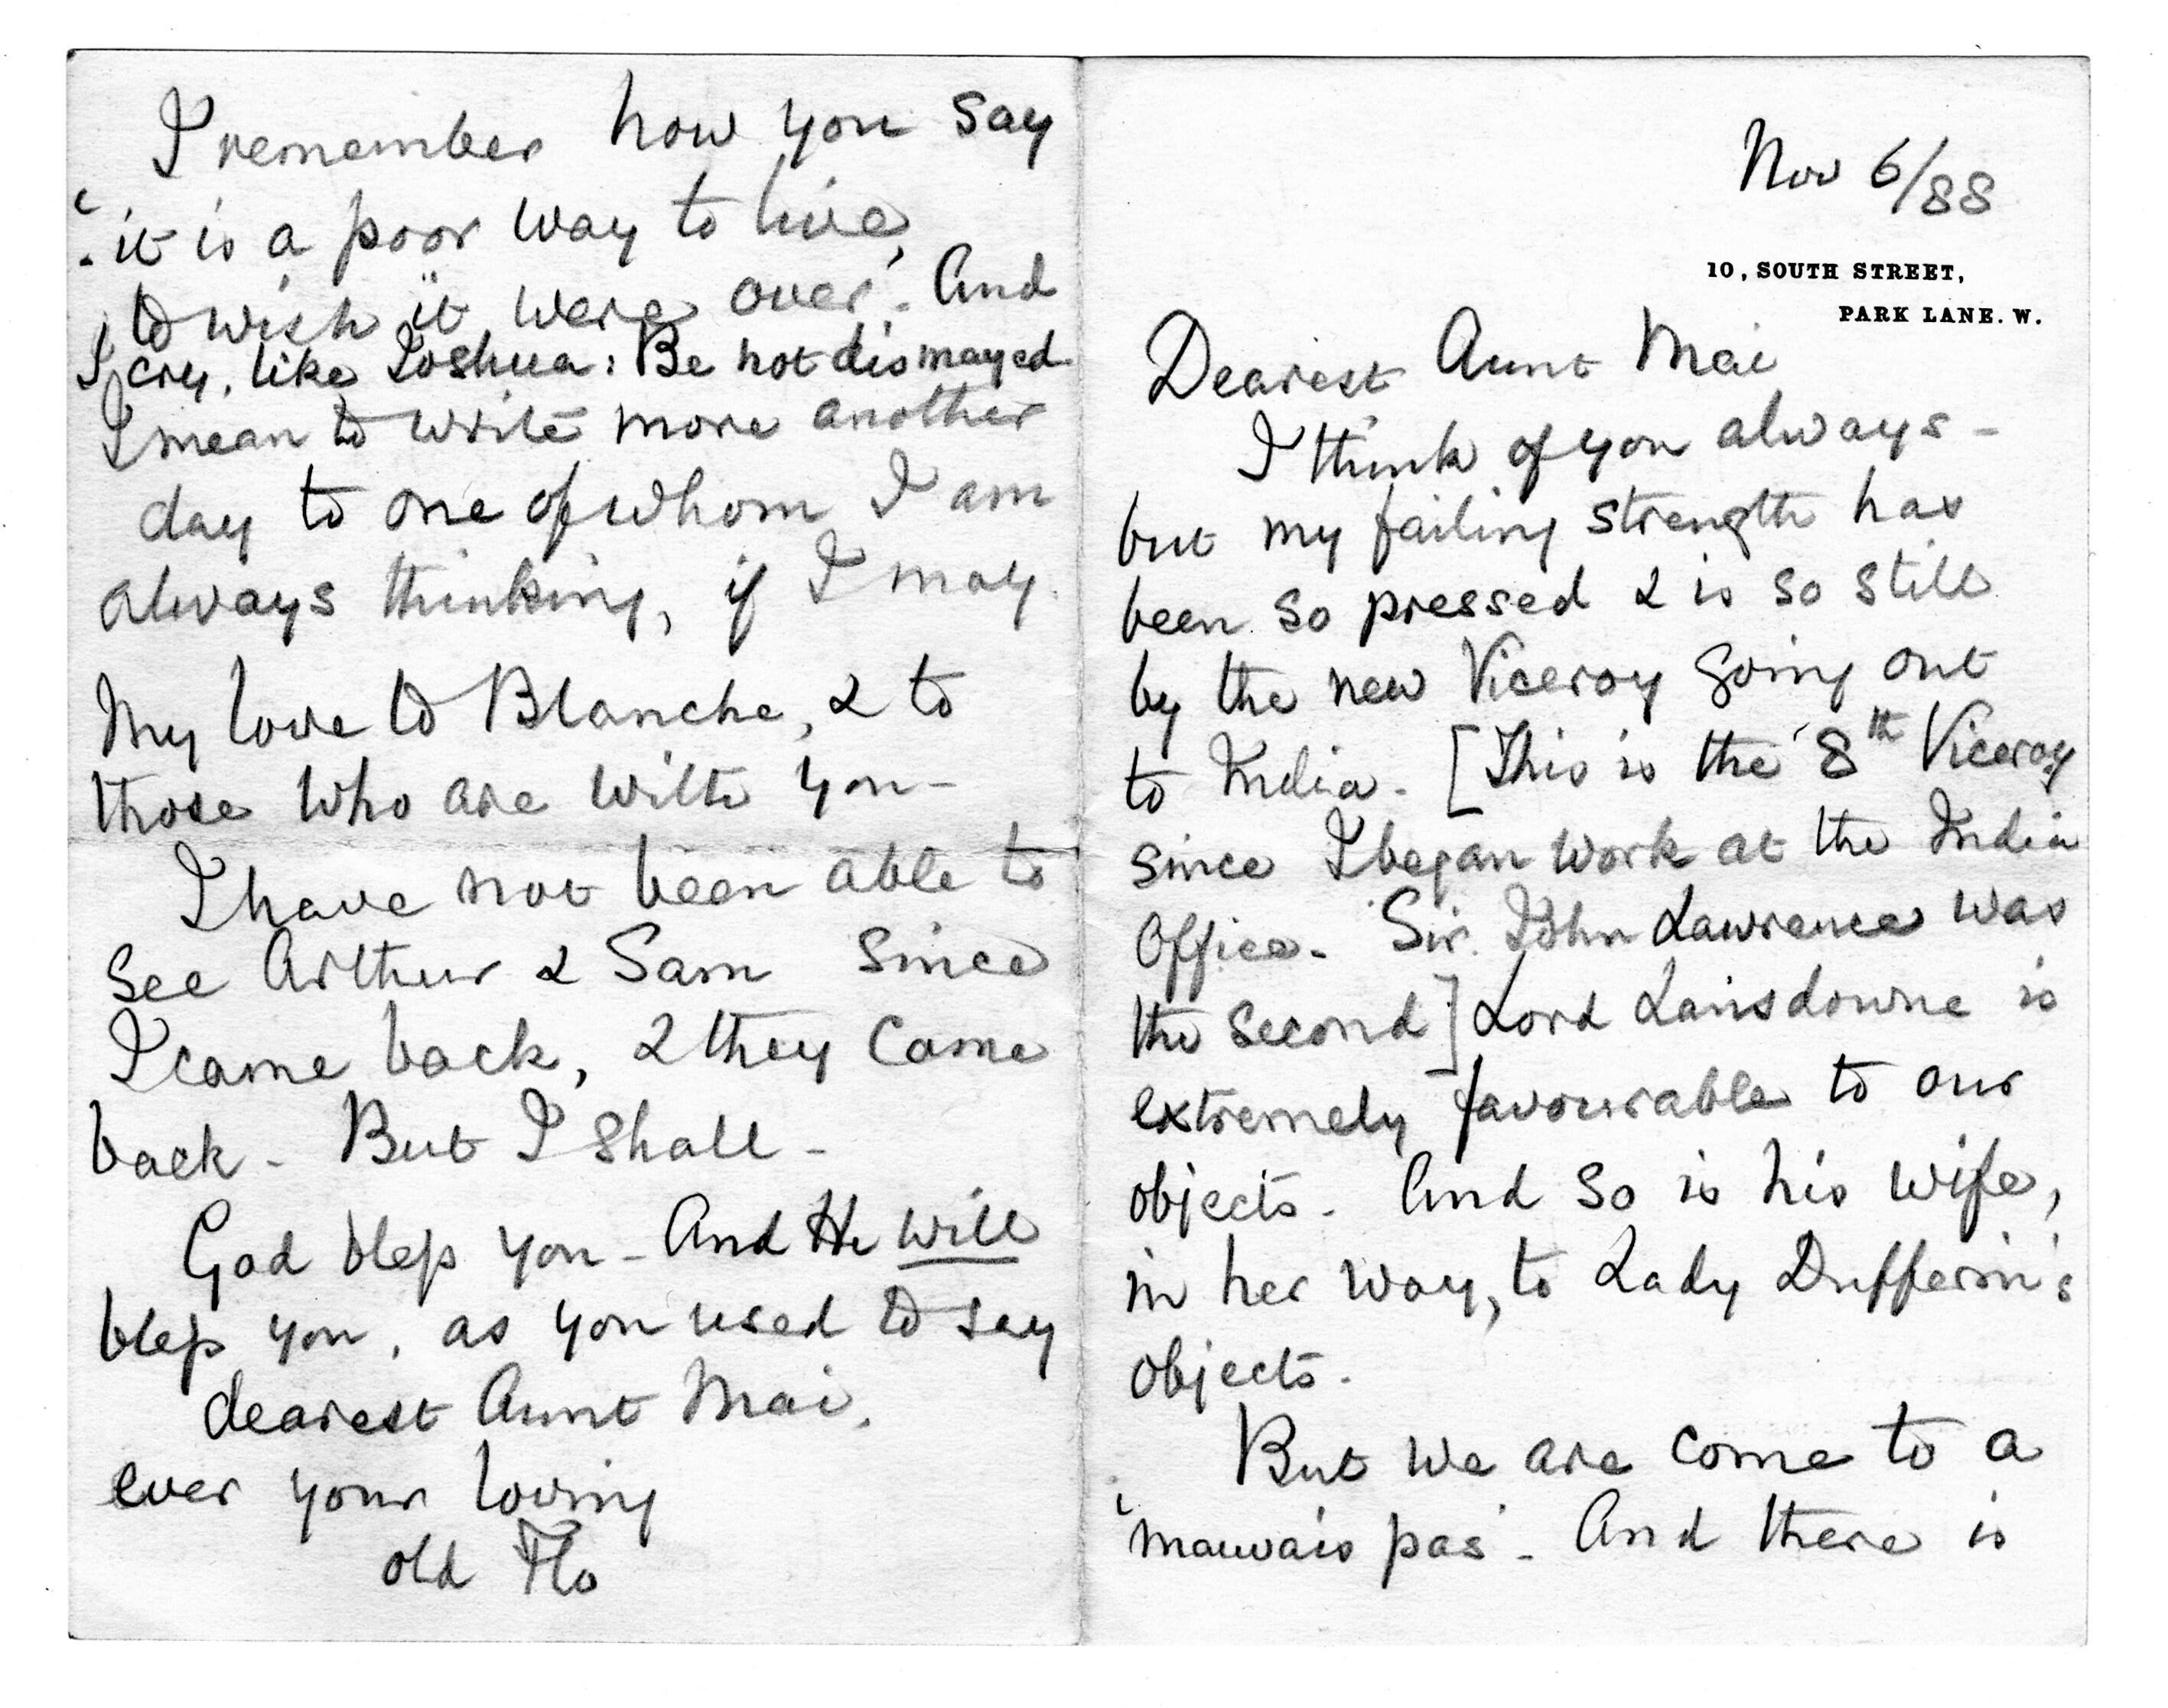 Nov 6/88
10, SOUTH STREET,
PARK LANE. W.
Dearest Aunt Mai
I think of you always -
but my failing strength has
been so pressed & is so still
by the new Viceroy going out
to India. [This is the 8th Viceroy
since I began work at the India
Office. Sir John Lawrence was
the second] Lord Lansdowne is
extremely favourable to our
objects. And so is his wife,
in her way, to Lady Dufferin's
objects.
But we are come to a
'mauvais pas'. And there is
I remember how you say
'it is a poor way to live,
to wish it were over'. And
I cry, like Joshua: Be not dismayed
I mean to write more another
day to one of whom I am
always thinking, if I may.
My love to Blanche, & to
those who are with you -
I have not been able to
see Arthur & Sam since
I came back, & they came
back - But I shall -
God bless you - And He will
bless you, as you used to say
dearest Aunt Mai,
ever your loving
old Flo